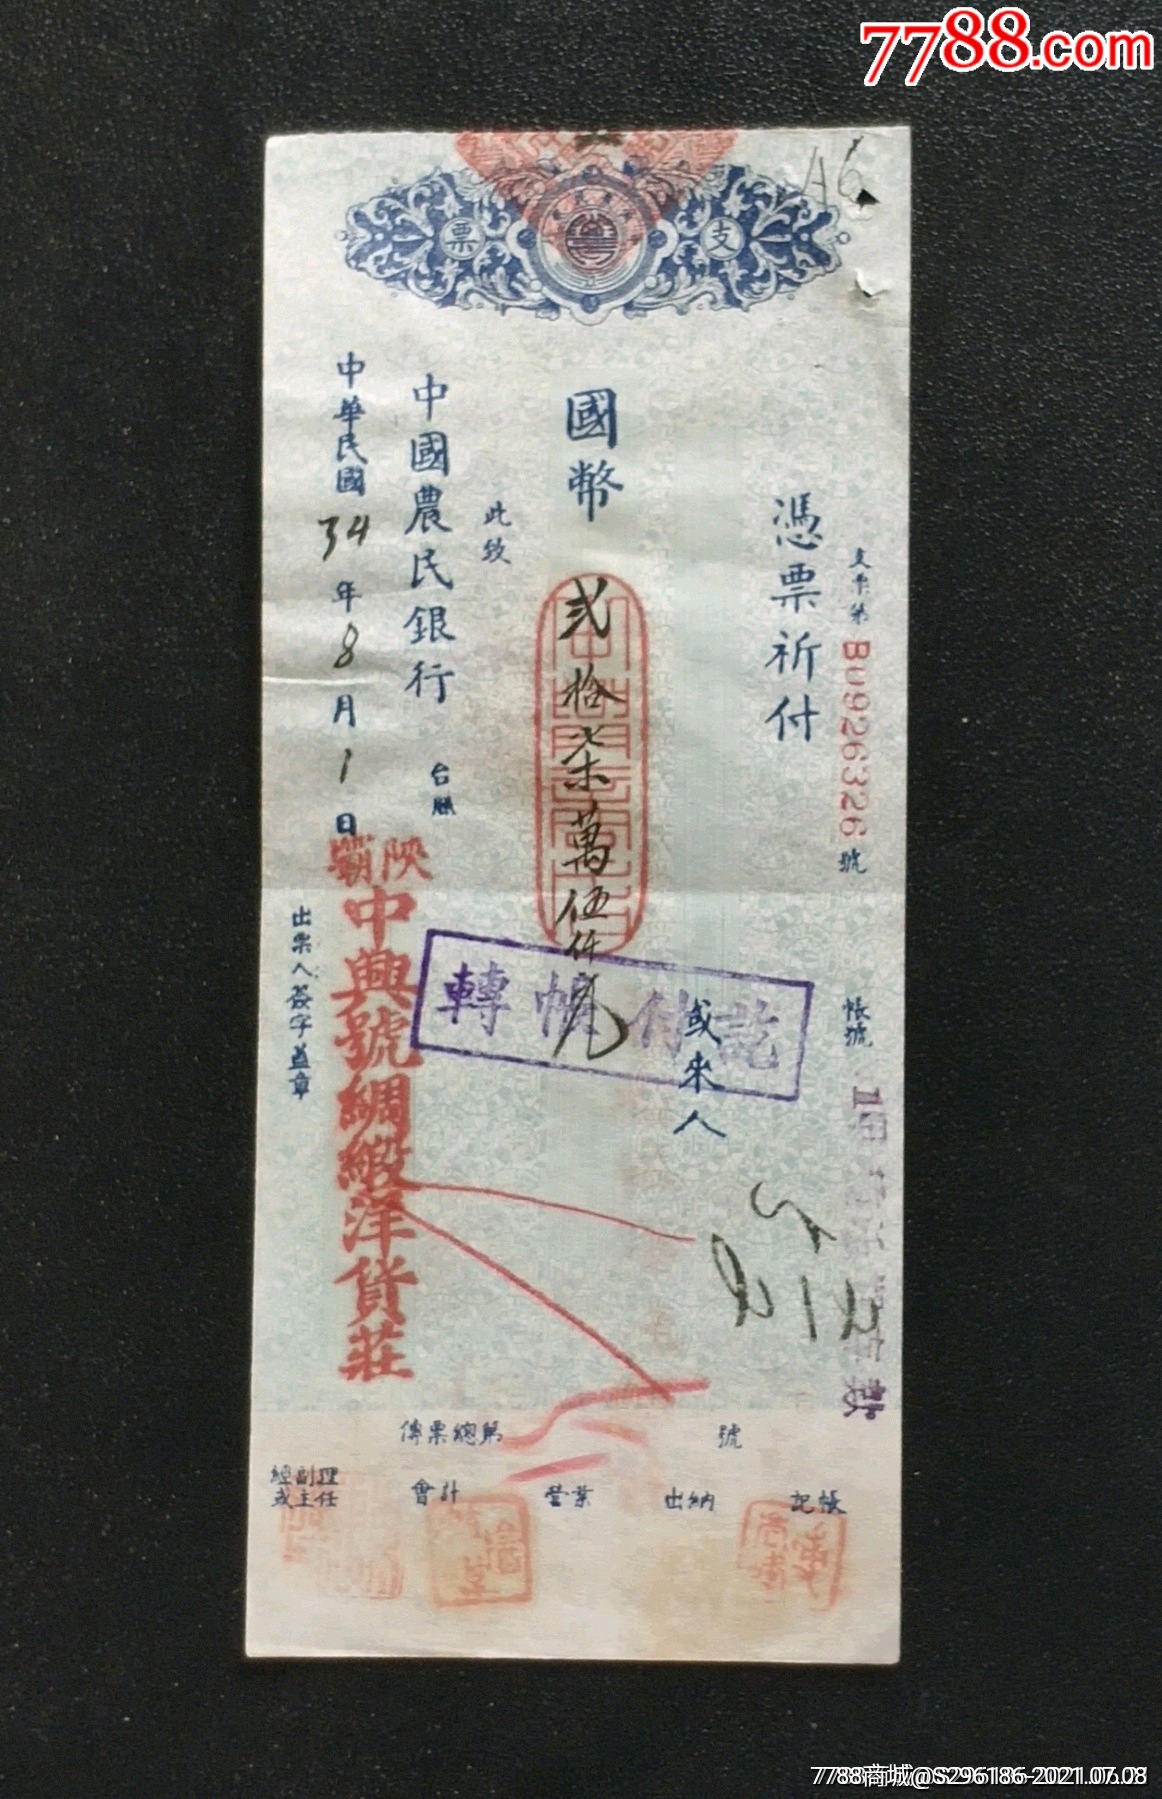 7788.com
A6
支票
支票第B0926326號
帳號
憑票祈付
或來人
國幣貳拾柒萬伍仟元
轉帳付訖
此致
中國農民銀行 台照
中華民國34年8月1日
陝霸
中興號綢緞洋貨莊
出票人簽字蓋章
傳票總第 號
經副理
或主任
會計
營業
出納
記帳
7788商城@S296186-2021.07.08